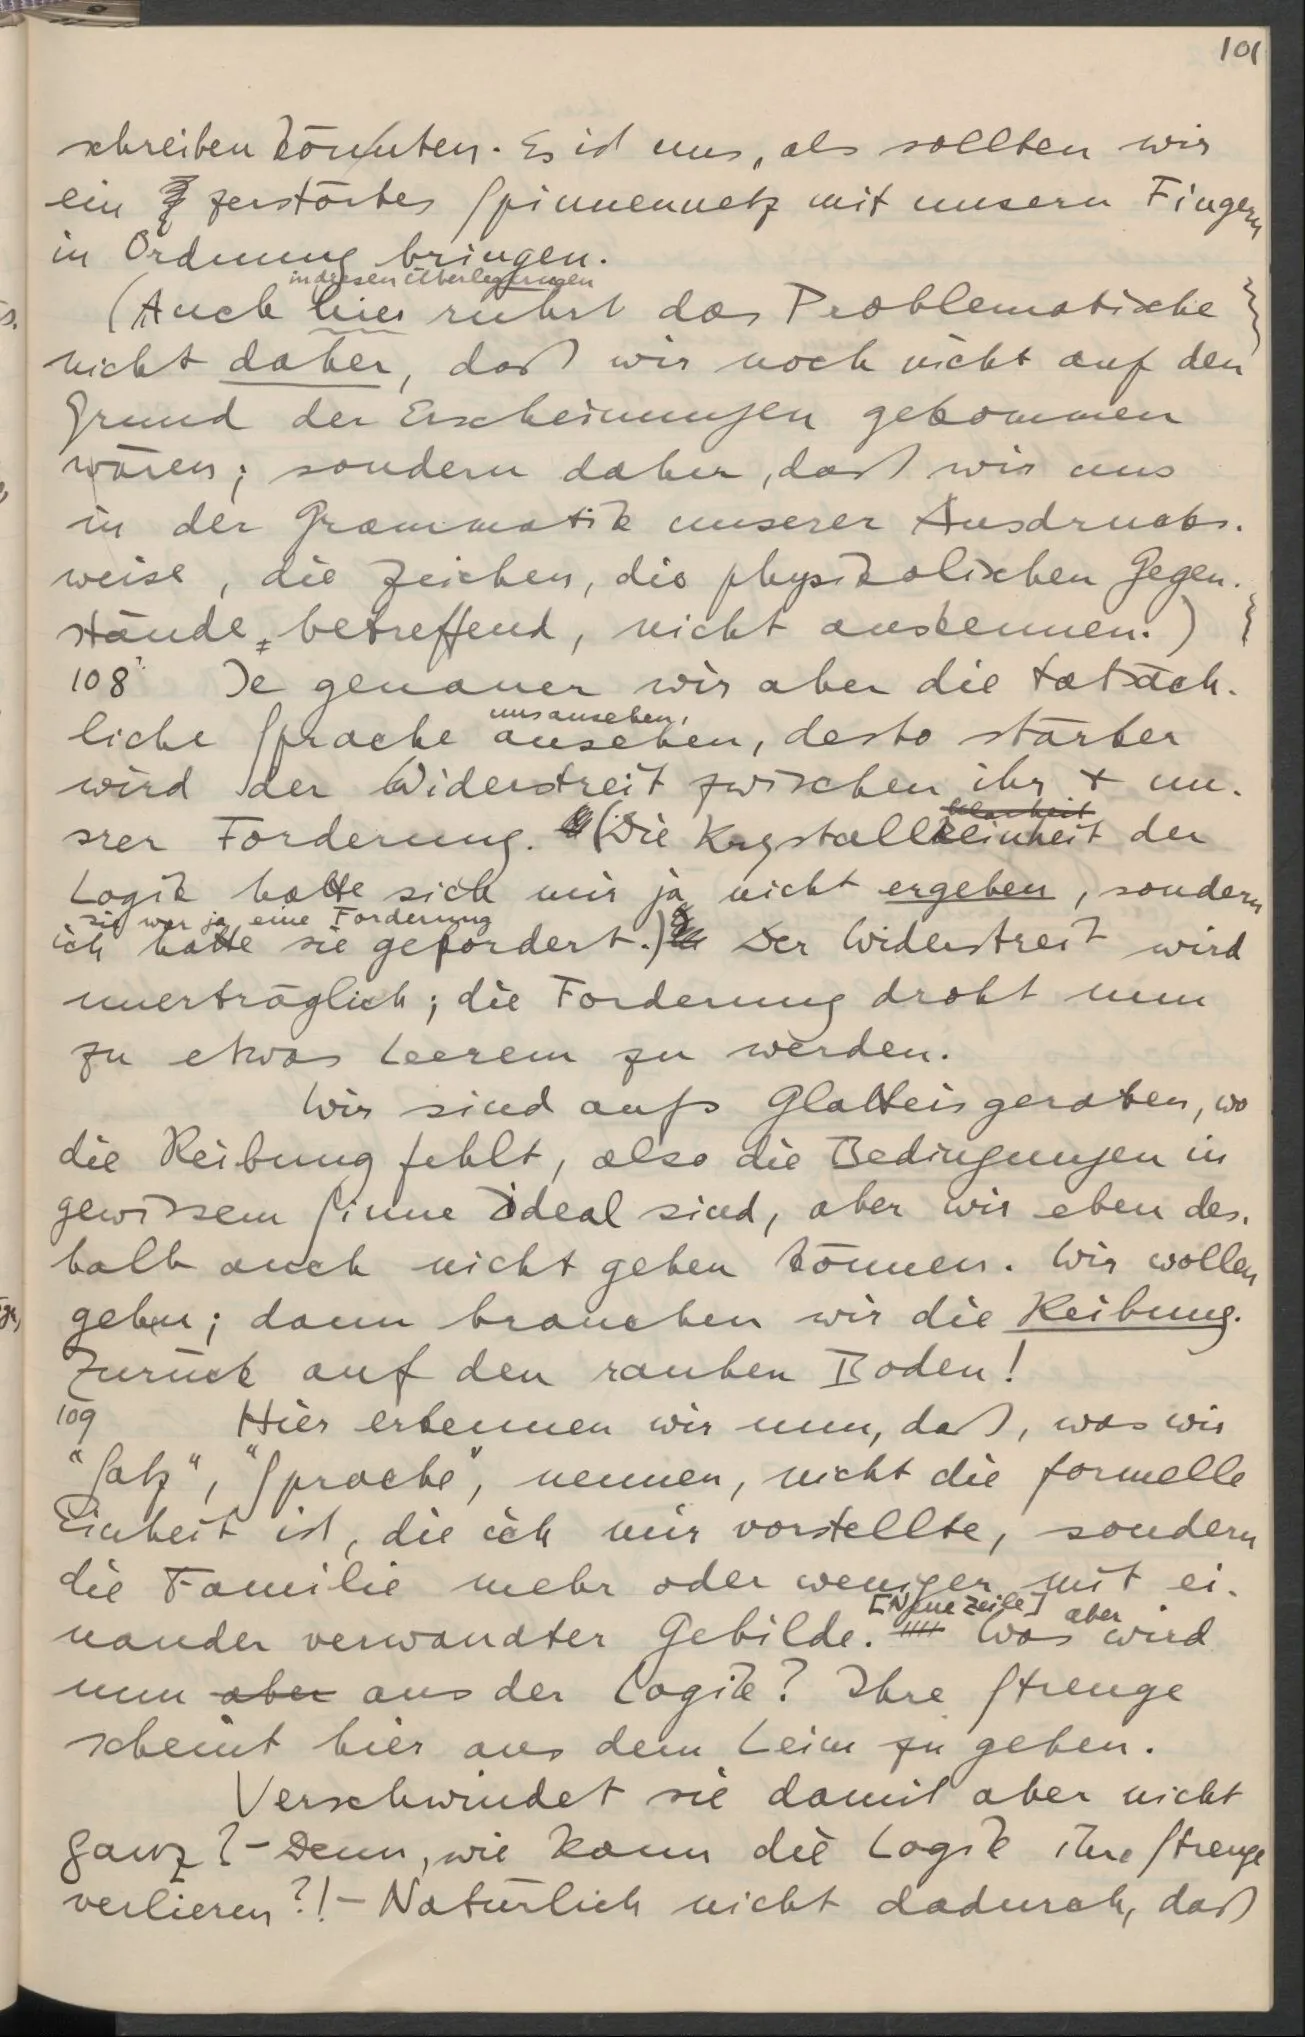 101
schreiben könnten. Es ist uns, als sollten wir
ein zerstörtes Spinnennetz mit unsern Fingern
in Ordnung bringen.
in diesen Überlegungen
(Auch hier rührt das Problematische
nicht daher, daß wir noch nicht auf den
Grund der Erscheinungen gekommen
wären; sondern daher, daß wir uns
in der Grammatik unserer Ausdrucks-
weise, die Zeichen, die physikalischen Gegen-
stände, betreffend, nicht auskennen.)
108 Je genauer wir aber die tatsäch-
uns ansehen,
liche Sprache ansehen, desto stärker
wird der Widerstreit zwischen ihr + un-
klarheit
srer Forderung. (Die Krystallreinheit der
Logik hatte sich mir ja nicht ergeben, sondern
sie war ja eine Forderung
ich hatte sie gefordert.) Der Widerstreit wird
unerträglich; die Forderung droht nun
zu etwas Leerem zu werden.
Wir sind aufs Glatteis geraten, wo
die Reibung fehlt, also die Bedingungen in
gewissem Sinne ideal sind, aber wir eben des-
halb auch nicht gehen können. Wir wollen
gehn; dann brauchen wir die Reibung.
Zurück auf den rauhen Boden!
109 Hier erkennen wir nun, daß, was wir
"Satz", "Sprache", nennen, nicht die formelle
Einheit ist, die ich mir vorstellte, sondern
die Familie mehr oder weniger mit ei-
[Neue Zeile] aber
nander verwandter Gebilde. Was wird
nun aber aus der Logik? Ihre Strenge
scheint hier aus dem Leim zu gehen.
Verschwindet sie damit aber nicht
ganz? – Denn, wie kann die Logik ihre Strenge
verlieren?! – Natürlich nicht dadurch, daß